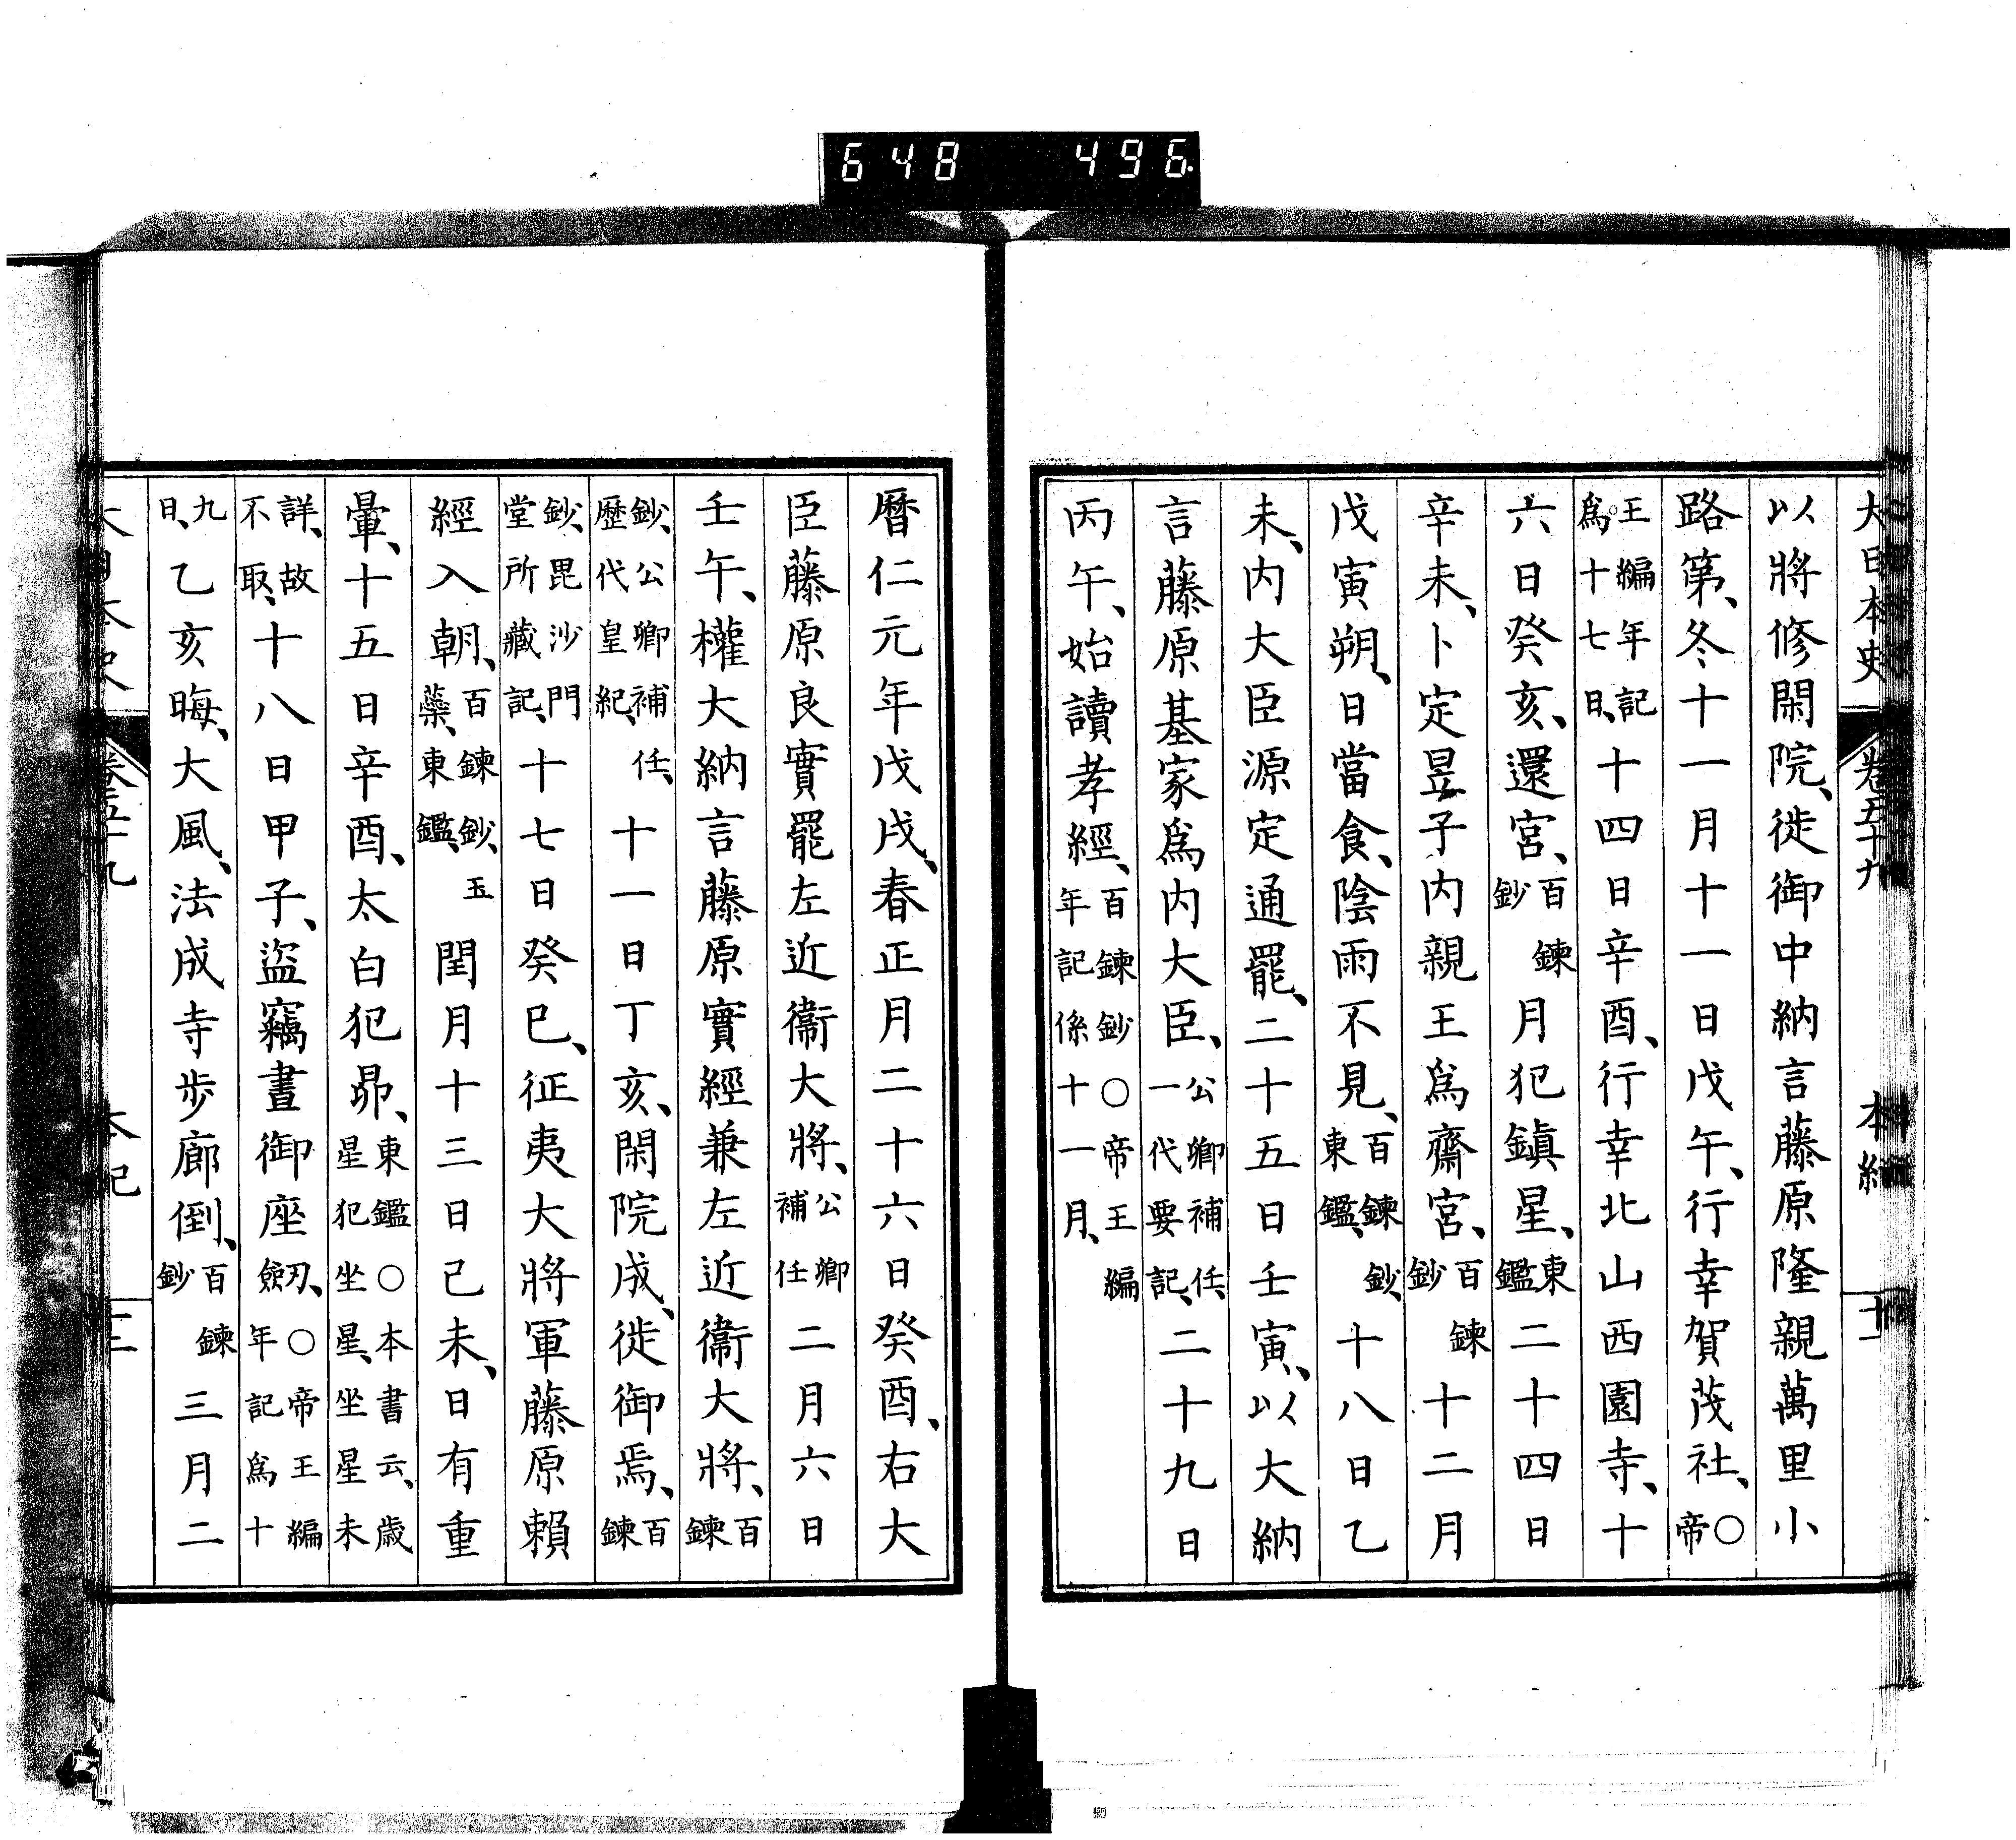 648 496
大日本史 卷五十九 本紀 十二
以將修閑院、徙御中納言藤原隆親萬里小
路第、冬十一月十一日戊午、行幸賀茂社、○帝
王編年記爲十七日、十四日辛酉、行幸北山西園寺、十
六日癸亥、還宮、百鍊鈔月犯鎭星、東鑑二十四日
辛未、卜定昱子內親王爲齋宮、百鍊鈔十二月
戊寅朔、日當食、陰雨不見、百鍊鈔、東鑑、十八日乙
未、內大臣源定通罷、二十五日壬寅、以大納
言藤原基家爲內大臣、公卿補任、一代要記、二十九日
丙午、始讀孝經、百鍊鈔○帝王編年記係十一月、
曆仁元年戊戌、春正月二十六日癸酉、右大
臣藤原良實罷左近衞大將、公卿補任二月六日
壬午、權大納言藤原實經兼左近衞大將、百鍊
鈔、公卿補任、歷代皇紀、十一日丁亥、閑院成、徙御焉、百鍊
鈔、毘沙門堂所藏記、十七日癸巳、征夷大將軍藤原賴
經入朝、百鍊鈔、玉蘂、東鑑、閏月十三日己未、日有重
暈、十五日辛酉、太白犯昴、東鑑○本書云、歲星犯坐星、坐星未
詳、故不取、十八日甲子、盜竊晝御座劒、○帝王編年記爲十
九日、乙亥晦、大風、法成寺步廊倒、百鍊鈔三月二
大日本史 卷五十九 本紀